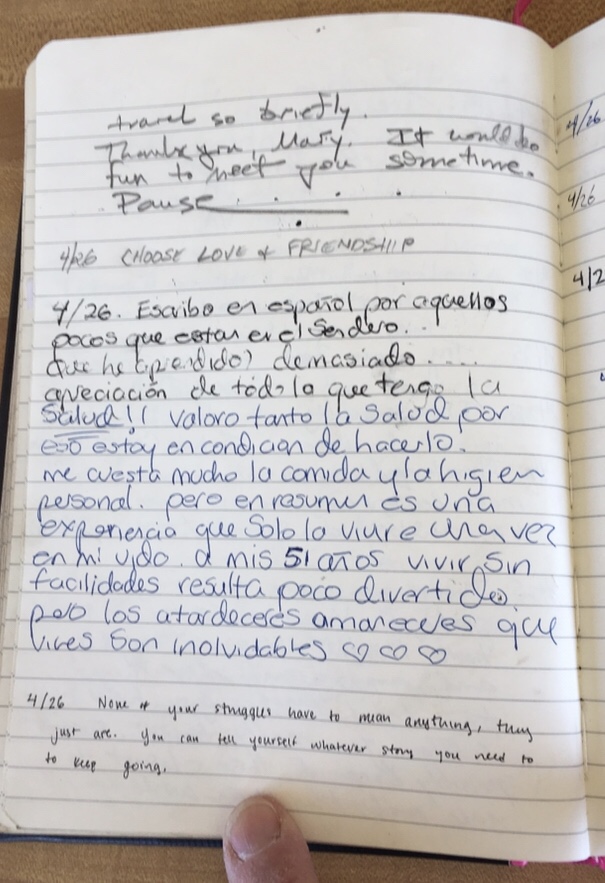 travel so briefly.
Thank you, Mary. It would be
fun to meet you sometime.
Pause
4/26 CHOOSE LOVE & FRIENDSHIP
4/26. Escribo en español por aquellos
pocos que estan en el Sendero...
que he aprendido) demasiado....
apreciación de todo lo que tengo la
Salud!! valoro tanto la salud por
eso estoy en condicion de hacerlo.
me cuesta mucho la comida y la higien
personal. pero en resumen es una
experiencia que solo lo vivire una vez
en mi vida. a mis 51 años vivir sin
facilidades resulta poco divertido
pero los atardeceres amaneceres que
vives son inolvidables ♡♡♡
4/26 None of your struggles have to mean anything, they
just are. You can tell yourself whatever story you need to
to keep going.
4/26
4/26
4/2